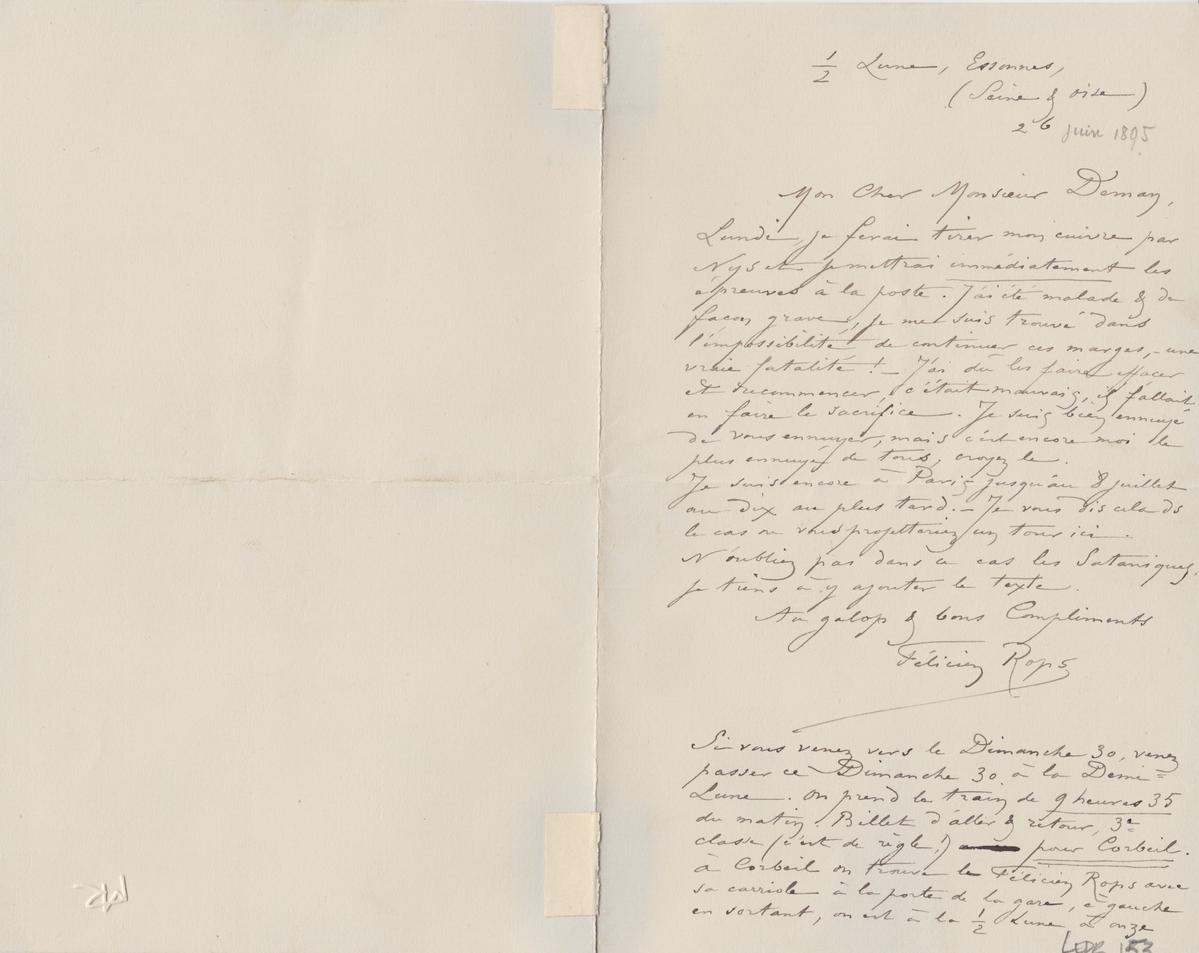 ½ Lune, Essonnes,
(Seine & oise)
26 juin 1895
Mon Cher Monsieur Deman,
Lundi, je ferai tirer mon cuivre par
Nys et je mettrai immédiatement les
épreuves à la poste. J'ai été malade & de
façon grave, je me suis trouvé dans
l'impossibilité de continuer ces marges, - une
vraie fatalité ! - J'ai dû les faire effacer
et recommencer, c'était mauvais, il fallait
en faire le sacrifice. Je suis bien ennuyé
de vous ennuyer, mais c'est encore moi le
plus ennuyé de tous, croyez le.
Je suis encore à Paris jusqu'au 8 juillet
au dix au plus tard. - Je vous dis cela ds
le cas ou vous projetteriez un tour ici.
N'oubliez pas dans ce cas les Sataniques,
je tiens à y ajouter le texte.
Au galop & bons Compliments
Félicien Rops
Si vous venez vers le Dimanche 30, venez
passer ce Dimanche 30 à la Demi=
Lune. On prend le train de 9 heures 35
du matin. Billet d'aller & retour, 3e
classe (c'est de règle !) pour Corbeil.
à Corbeil on trouve le Félicien Rops avec
sa carriole à la porte de la gare, à gauche
en sortant, on est à la ½ Lune à onze
LDR 153
FR